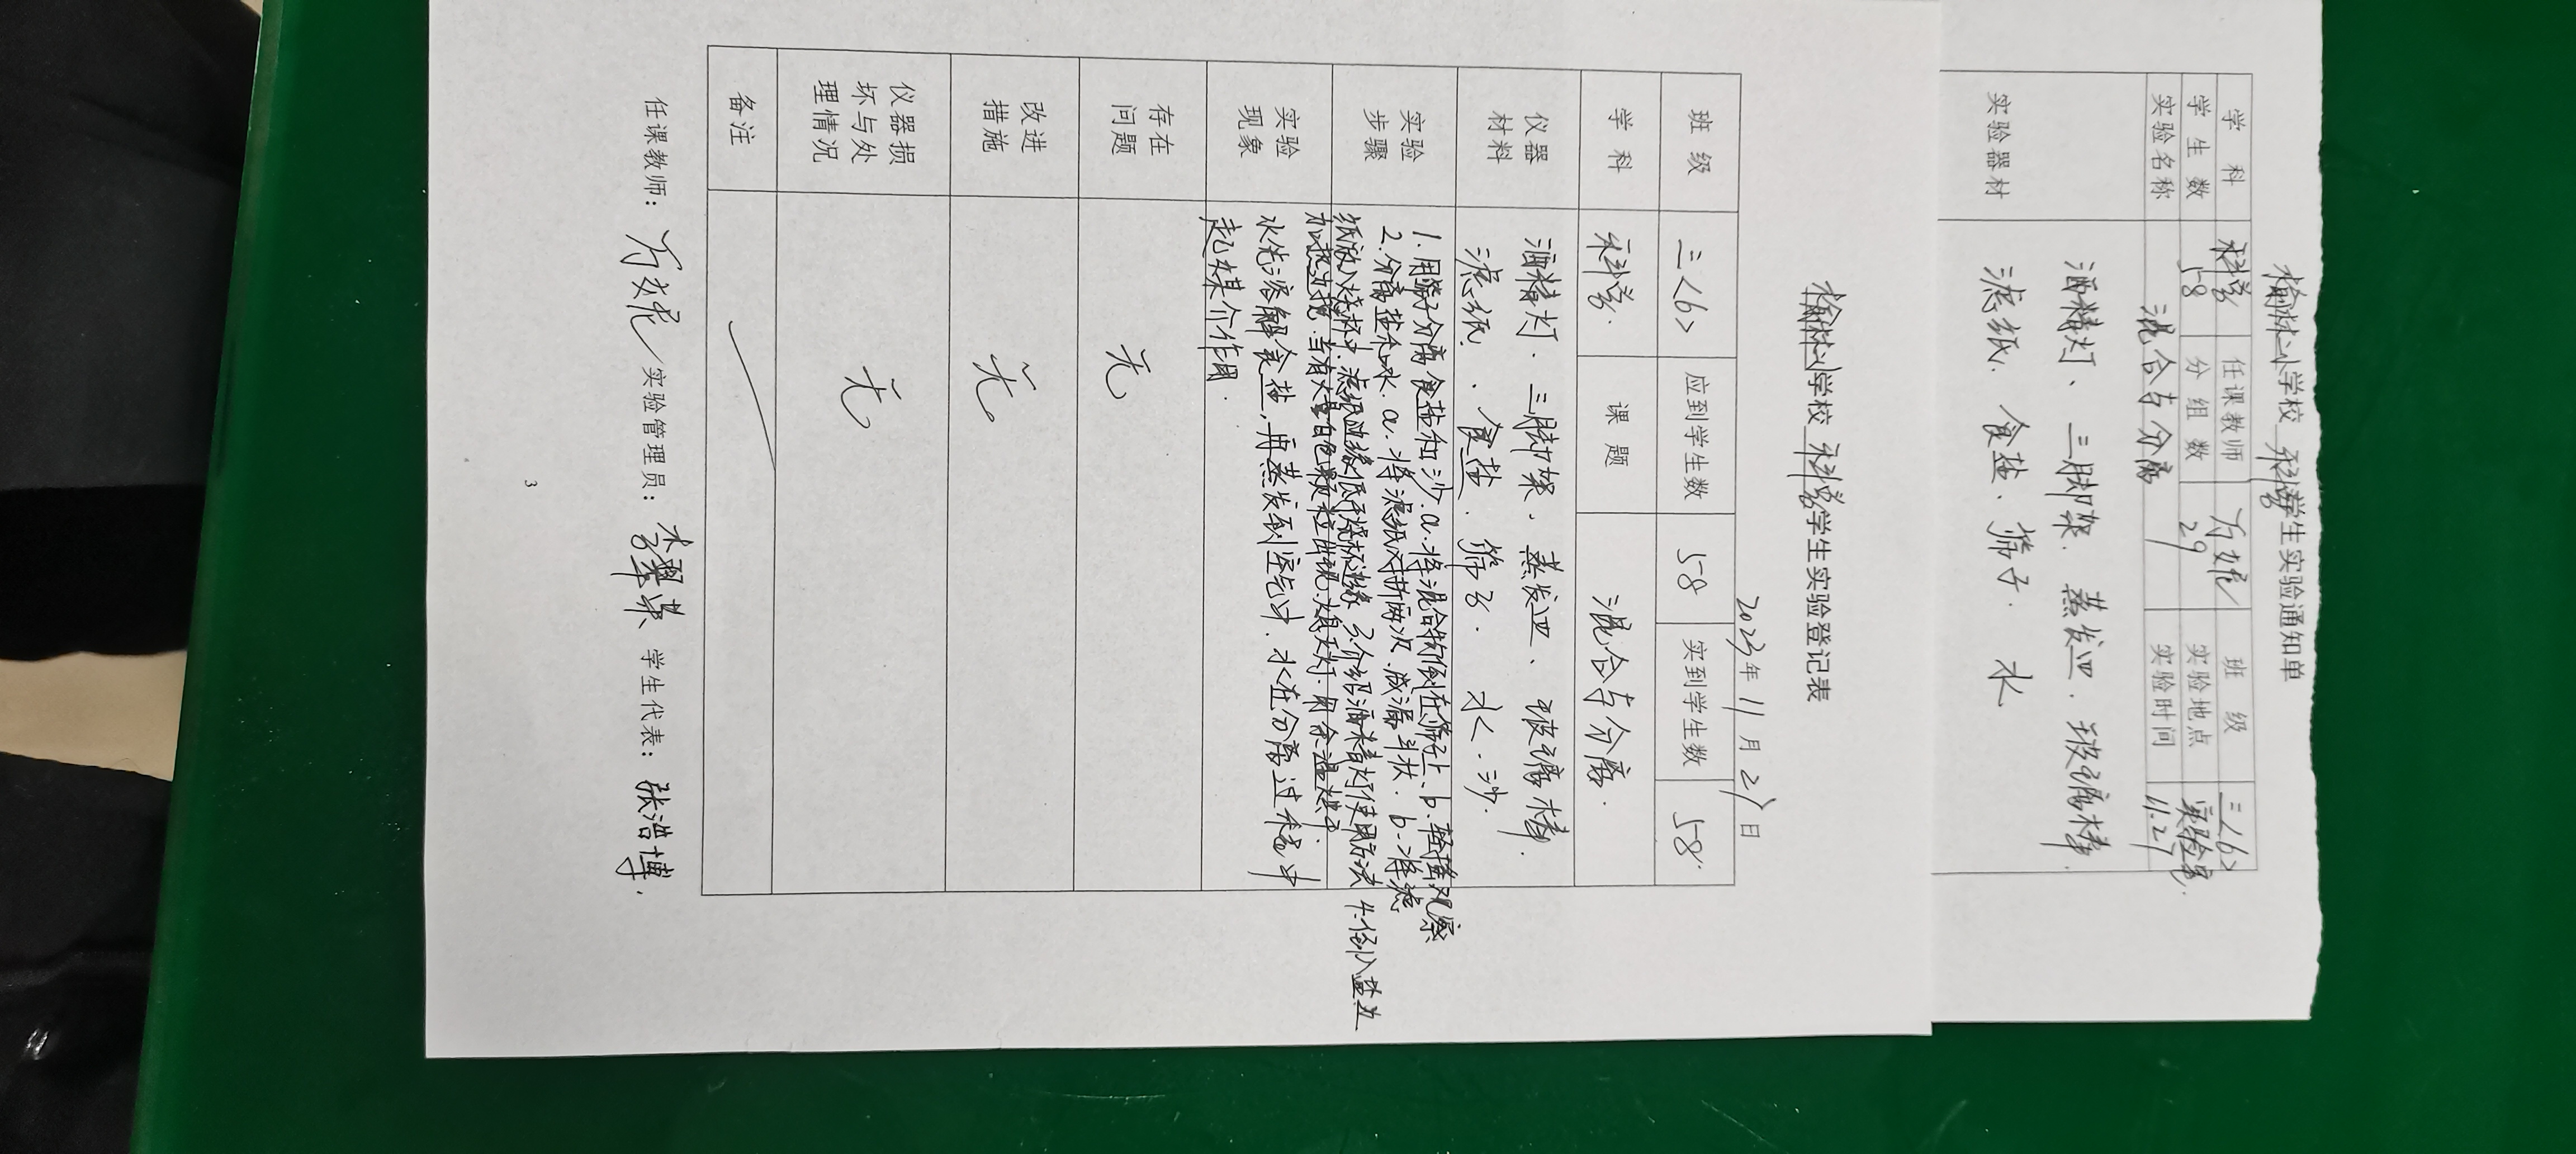 榆林小学校 科学学生实验通知单
学 科 科学 任课教师 班 级 三<6>
学 生 数 58 分 组 数 29 实验地点 实验室.
实验名称 混合与分离 实验时间 11.27
实验器材
酒精灯、三脚架. 蒸发皿. 玻璃棒.
滤纸. 食盐. 筛子. 水
榆林小学校 科学学生实验登记表
2023年 11月 27日
班 级 三<6> 应到学生数 58 实到学生数 58.
学 科 科学. 课 题 混合与分离.
仪器材料
酒精灯. 三脚架. 蒸发皿、玻璃棒.
滤纸. 食盐. 筛子. 水. 沙.
实验步骤
1. 用筛子分离食盐和沙. a.将混合物倒在筛子上. b.轻摇观察
2. 分离盐和水. a.将滤纸对折两次.成漏斗状. b.将滤
纸放入烧杯中.滤纸边缘低于烧杯边缘 3.介绍酒精灯使用方法 4.倒入盐水
加热过程.当有大量白色颗粒出现.熄灭灯.用余温烘干.
实验现象
水先溶解食盐,再蒸发到空气中.水在分离过程中
起了媒介作用.
存在问题 无
改进措施 无
仪器损坏与处理情况 无
备注
任课教师: 实验管理员: 李翠英 学生代表: 张浩博.
3